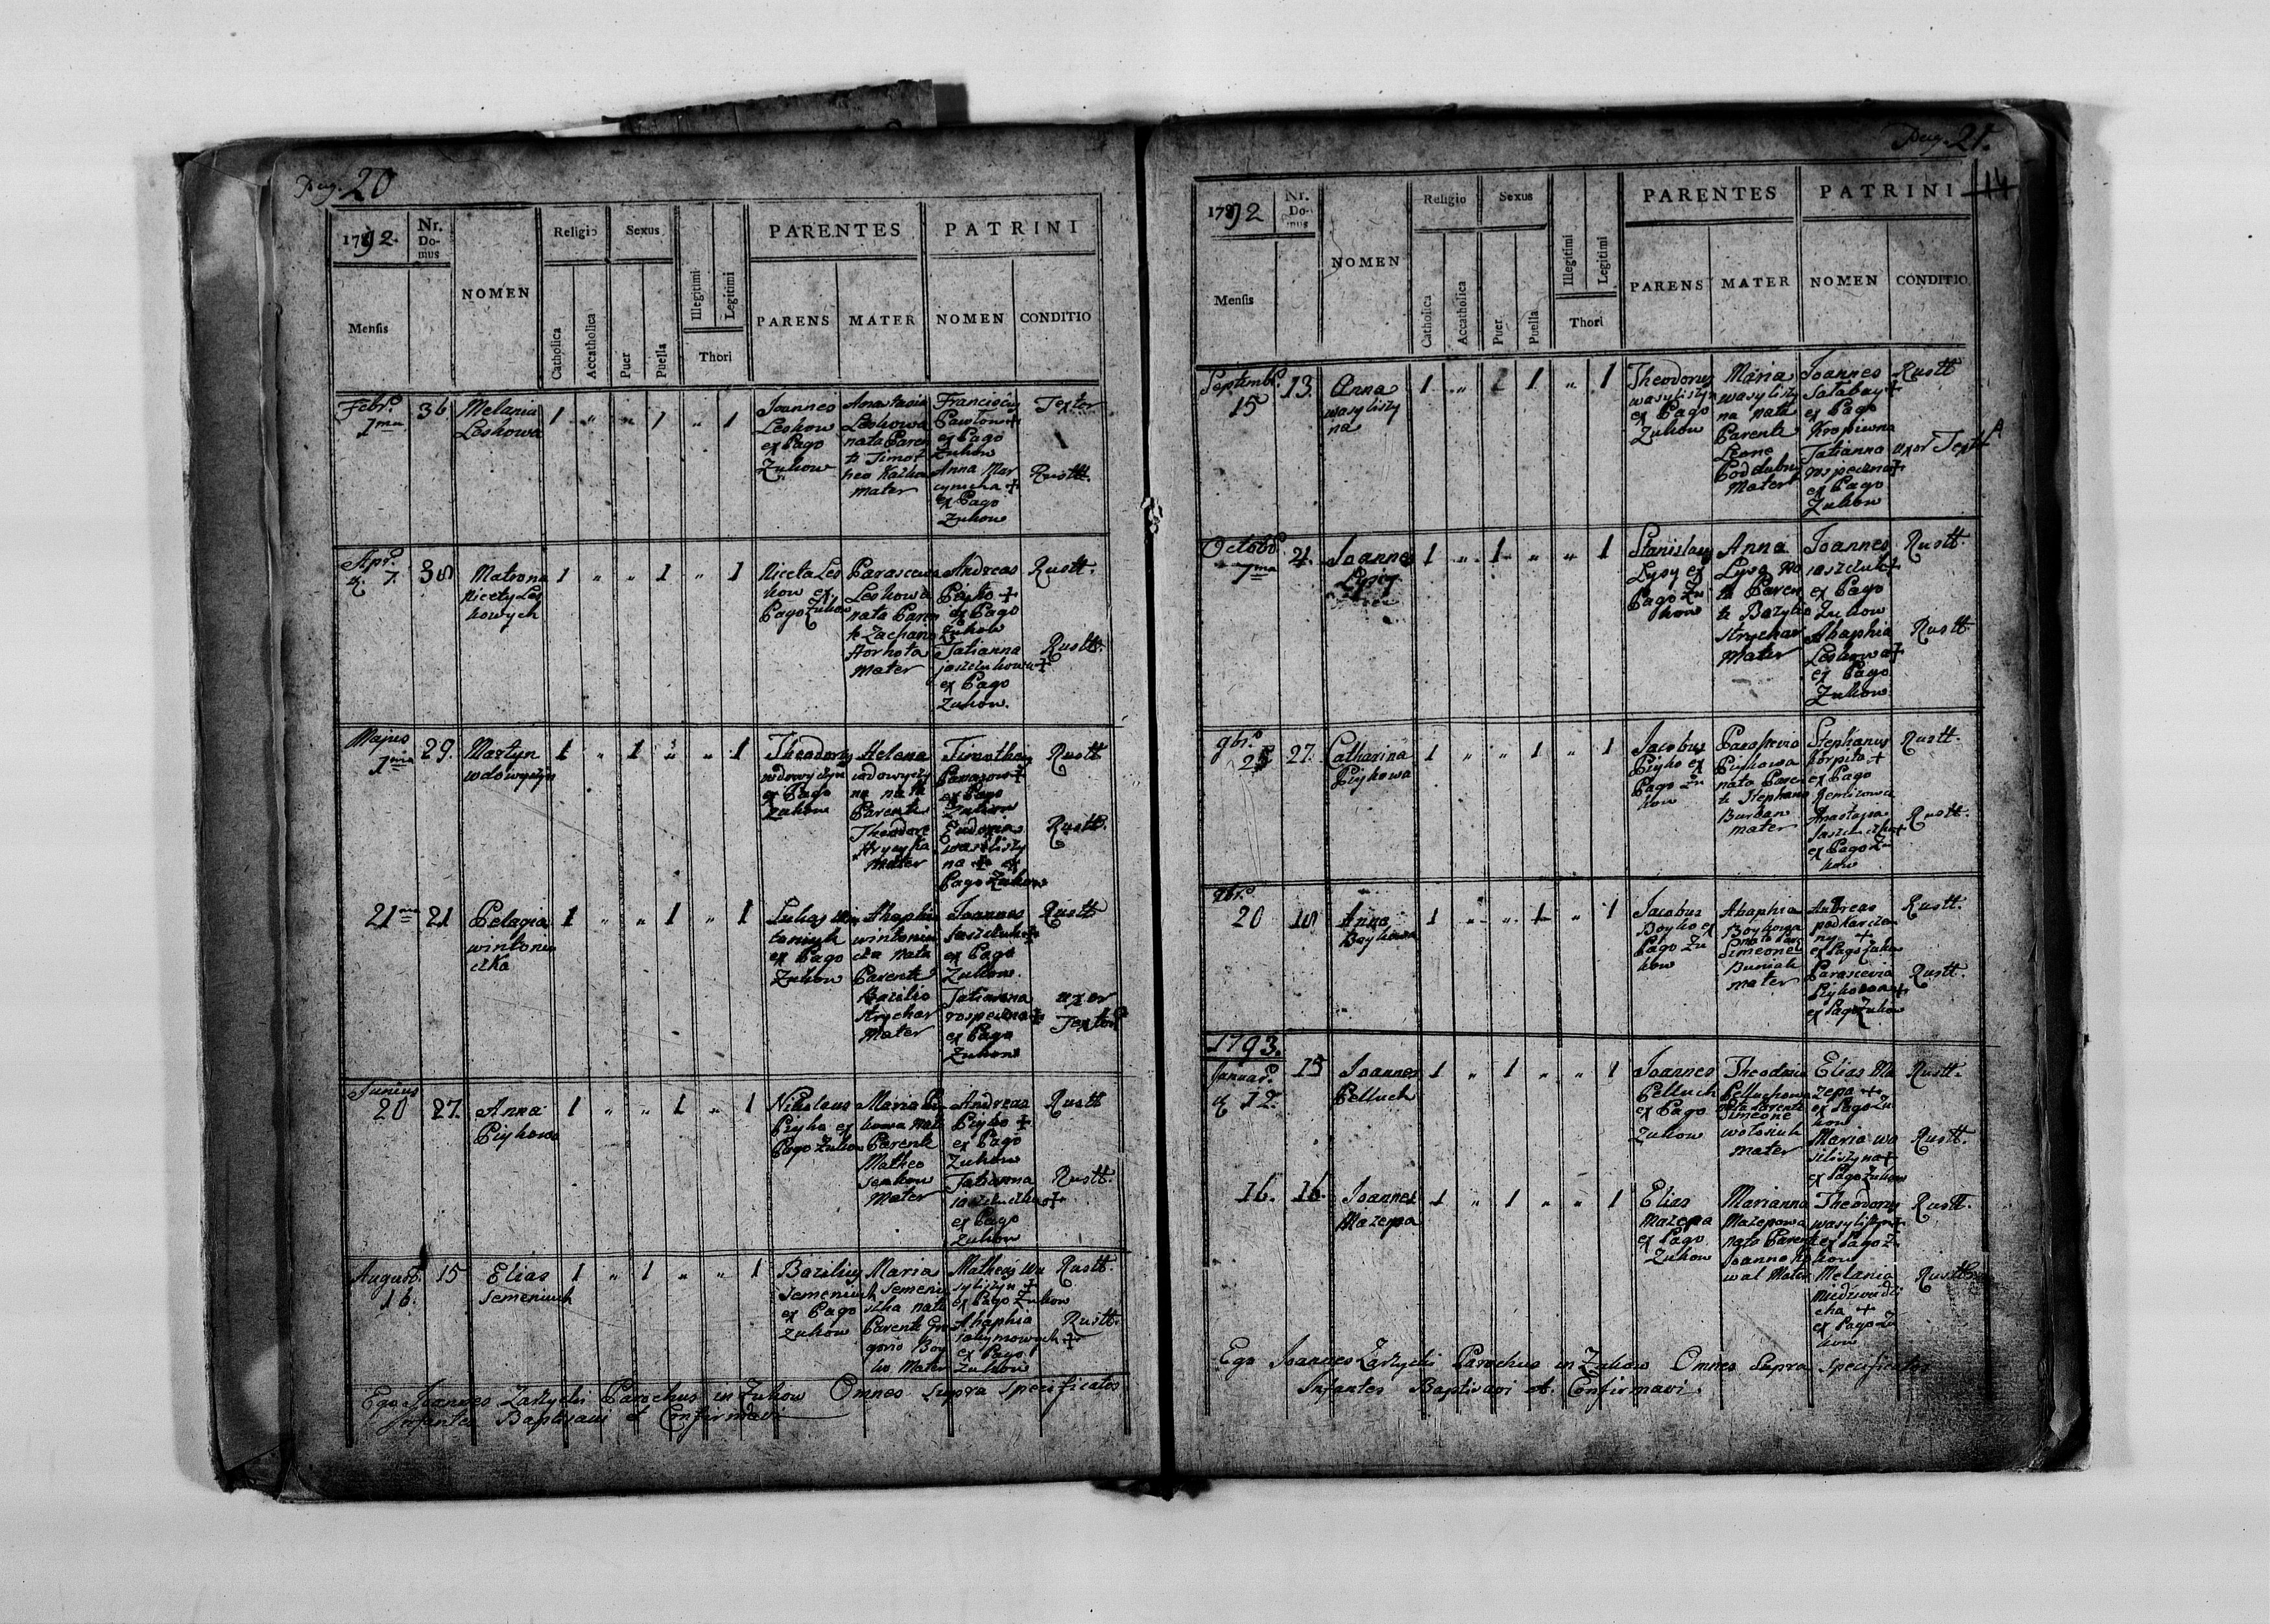 Pag. 20
1792.
Nr. Do- mus
NOMEN
Religio
Sexus
PARENTES
PATRINI
Mensis
Catholica
Accatholica
Puer
Puella
Illegitimi
Legitimi
Thori
PARENS
MATER
NOMEN
CONDITIO
Febr.
1ma
36
Melania
Leskowa
1 " " 1 " 1
Joannes
Leskow
ex Pago
Zukow
Anastasia
Leskowa
nata Paren
te Timot
heo
Mater
Franciscus
Pawlow +
ex Pago
Zukow
Anna Mar
+
ex Pago
Zukow
Textor
Rustt.
Apr.
7.
Matrona
Nicety Les
kowych
1 " " 1 " 1
Niceta Les
kow ex
Pago Zukow
Parascewia
Leskowa
nata Paren
te Zacharia
Horhota
Mater
Andreas
+
ex Pago
Zukow
Tatianna
jaszczukowa +
ex Pago
Zukow.
Rustt.
Rustt.
Majus
1ma
29.
Martyn
wdowyczyn
1 " 1 " " 1
Theodorus
wdowyczyn
ex Pago
Zukow
Helena
wdowyczy
na nata
Parente
Theodore
Mater
Timotheus
+
ex Pago
Zukow
Eudoxia
wasilisży
na + ex
Pago Zukow
Rustt
Rustt.
21ma
21
Pelagia
wintoniu
czka
1 " " 1 " 1
Lukas win
toniuk
ex Pago
Zukow
Ahaphia
wintoniu
czka nata
Parente
Bazilio
Hrychar
Mater
Joannes
Jaszczuk +
ex Pago
Zukow.
Tatianna
+
ex Pago
Zukow
Rustt
uxor
Textor
Junius
20
27.
Anna
Piykowa
1 " " 1 " 1
Nikolaus
Piyko ex
Pago Zukow
Maria Piy
kowa nata
Parente
Matheo
Senkow
Mater
Andreas
Piyko +
ex Pago
Zukow
Tatianna
+
ex Pago
Zukow
Rustt
Rustt.
August.
16.
15
Elias
Semeniuk
1 " 1 " " 1
Bazilius
Semeniuk
ex Pago
Zukow
Maria
Semeniu
czka nata
Parente Gre
gorio Boy
ko Mater
Matheus Wa
syliszyn +
ex Pago Zukow
Ahaphia
+
ex Pago
Zukow
Rustt.
Rustt.
Ego Joannes Zarzycki Parochus in Zukow Omnes supra specificatos
Infantes Baptisavi et Confirmavi
Pag. 21.
14
1792
Nr. Do- mus
NOMEN
Religio
Sexus
PARENTES
PATRINI
Mensis
Catholica
Accatholica
Puer
Puella
Illegitimi
Legitimi
Thori
PARENS
MATER
NOMEN
CONDITIO
Septemb.
15
13.
Anna
wasyliszy
na
1 " 1 " 1
Theodorus
wasyliszyn
ex Pago
Zukow
Maria
wasyliszy
na nata
Parente
Leone
Poddubny
Mater
Joannes
Satabay +
ex Pago
Kropiwna
Tatianna
+
ex Pago
Zukow
Rustt
uxor Text
Octobr.
7ma
4.
Joannes
Lysy
1 " 1 " " 1
Stanislaus
Lysy ex
Pago Zu
kow
Anna
Lysa na
ta Paren
te Bazylio
Hrychar
Mater
Joannes
+
ex Pago
Zukow
Ahaphia
Leskowa +
ex Pago
Zukow
Rustt.
Rustt
9br.
25
27.
Catharina
Piykowa
1 " " 1 " 1
Jacobus
Piyko ex
Pago Zu
kow
Piykowa
nata Paren
te Stephano
Burban
Mater
Stephanus
+
ex Pago
Anastasia
+
ex Pago Zu
kow
Rustt.
Rustt.
20
Anna
Boykowa
1 " " 1 " 1
Jacobus
Boyko ex
Pago Zu
kow
Ahaphia
Boykowa
nata Paren
Simeone
Buniak
Mater
Andreas
podkarcza
ny +
ex Pago Zukow
Parascevia
Piykowa +
ex Pago Zukow
Rustt.
Rustt.
1793.
Januar.
12.
15
Joannes
Pelluch
1 " 1 " " 1
Joannes
Pelluch
ex Pago
Zukow
Theodosia
Pelluchowa
nata Parente
Simeone
wołosiuk
Mater
Elias Ma
zepa +
ex Pago Zu
kow
Maria wa
siliszyna +
ex Pago Zukow
Rustt.
Rustt.
16.
16.
Joannes
Mazepa
1 " 1 " " 1
Elias
Mazepa
ex Pago
Zukow
Marianna
Mazepowa
nata Parente
Joanne Ko
wal Mater
Theodorus
wasyliszyn +
ex Pago Zu
kow
Melania
+
ex Pago Zu
kow
Rustt.
Rustt.
Ego Joannes Zarzycki Parochus in Zukow Omnes Supra specificatos
Infantes Baptisavi et Confirmavi.